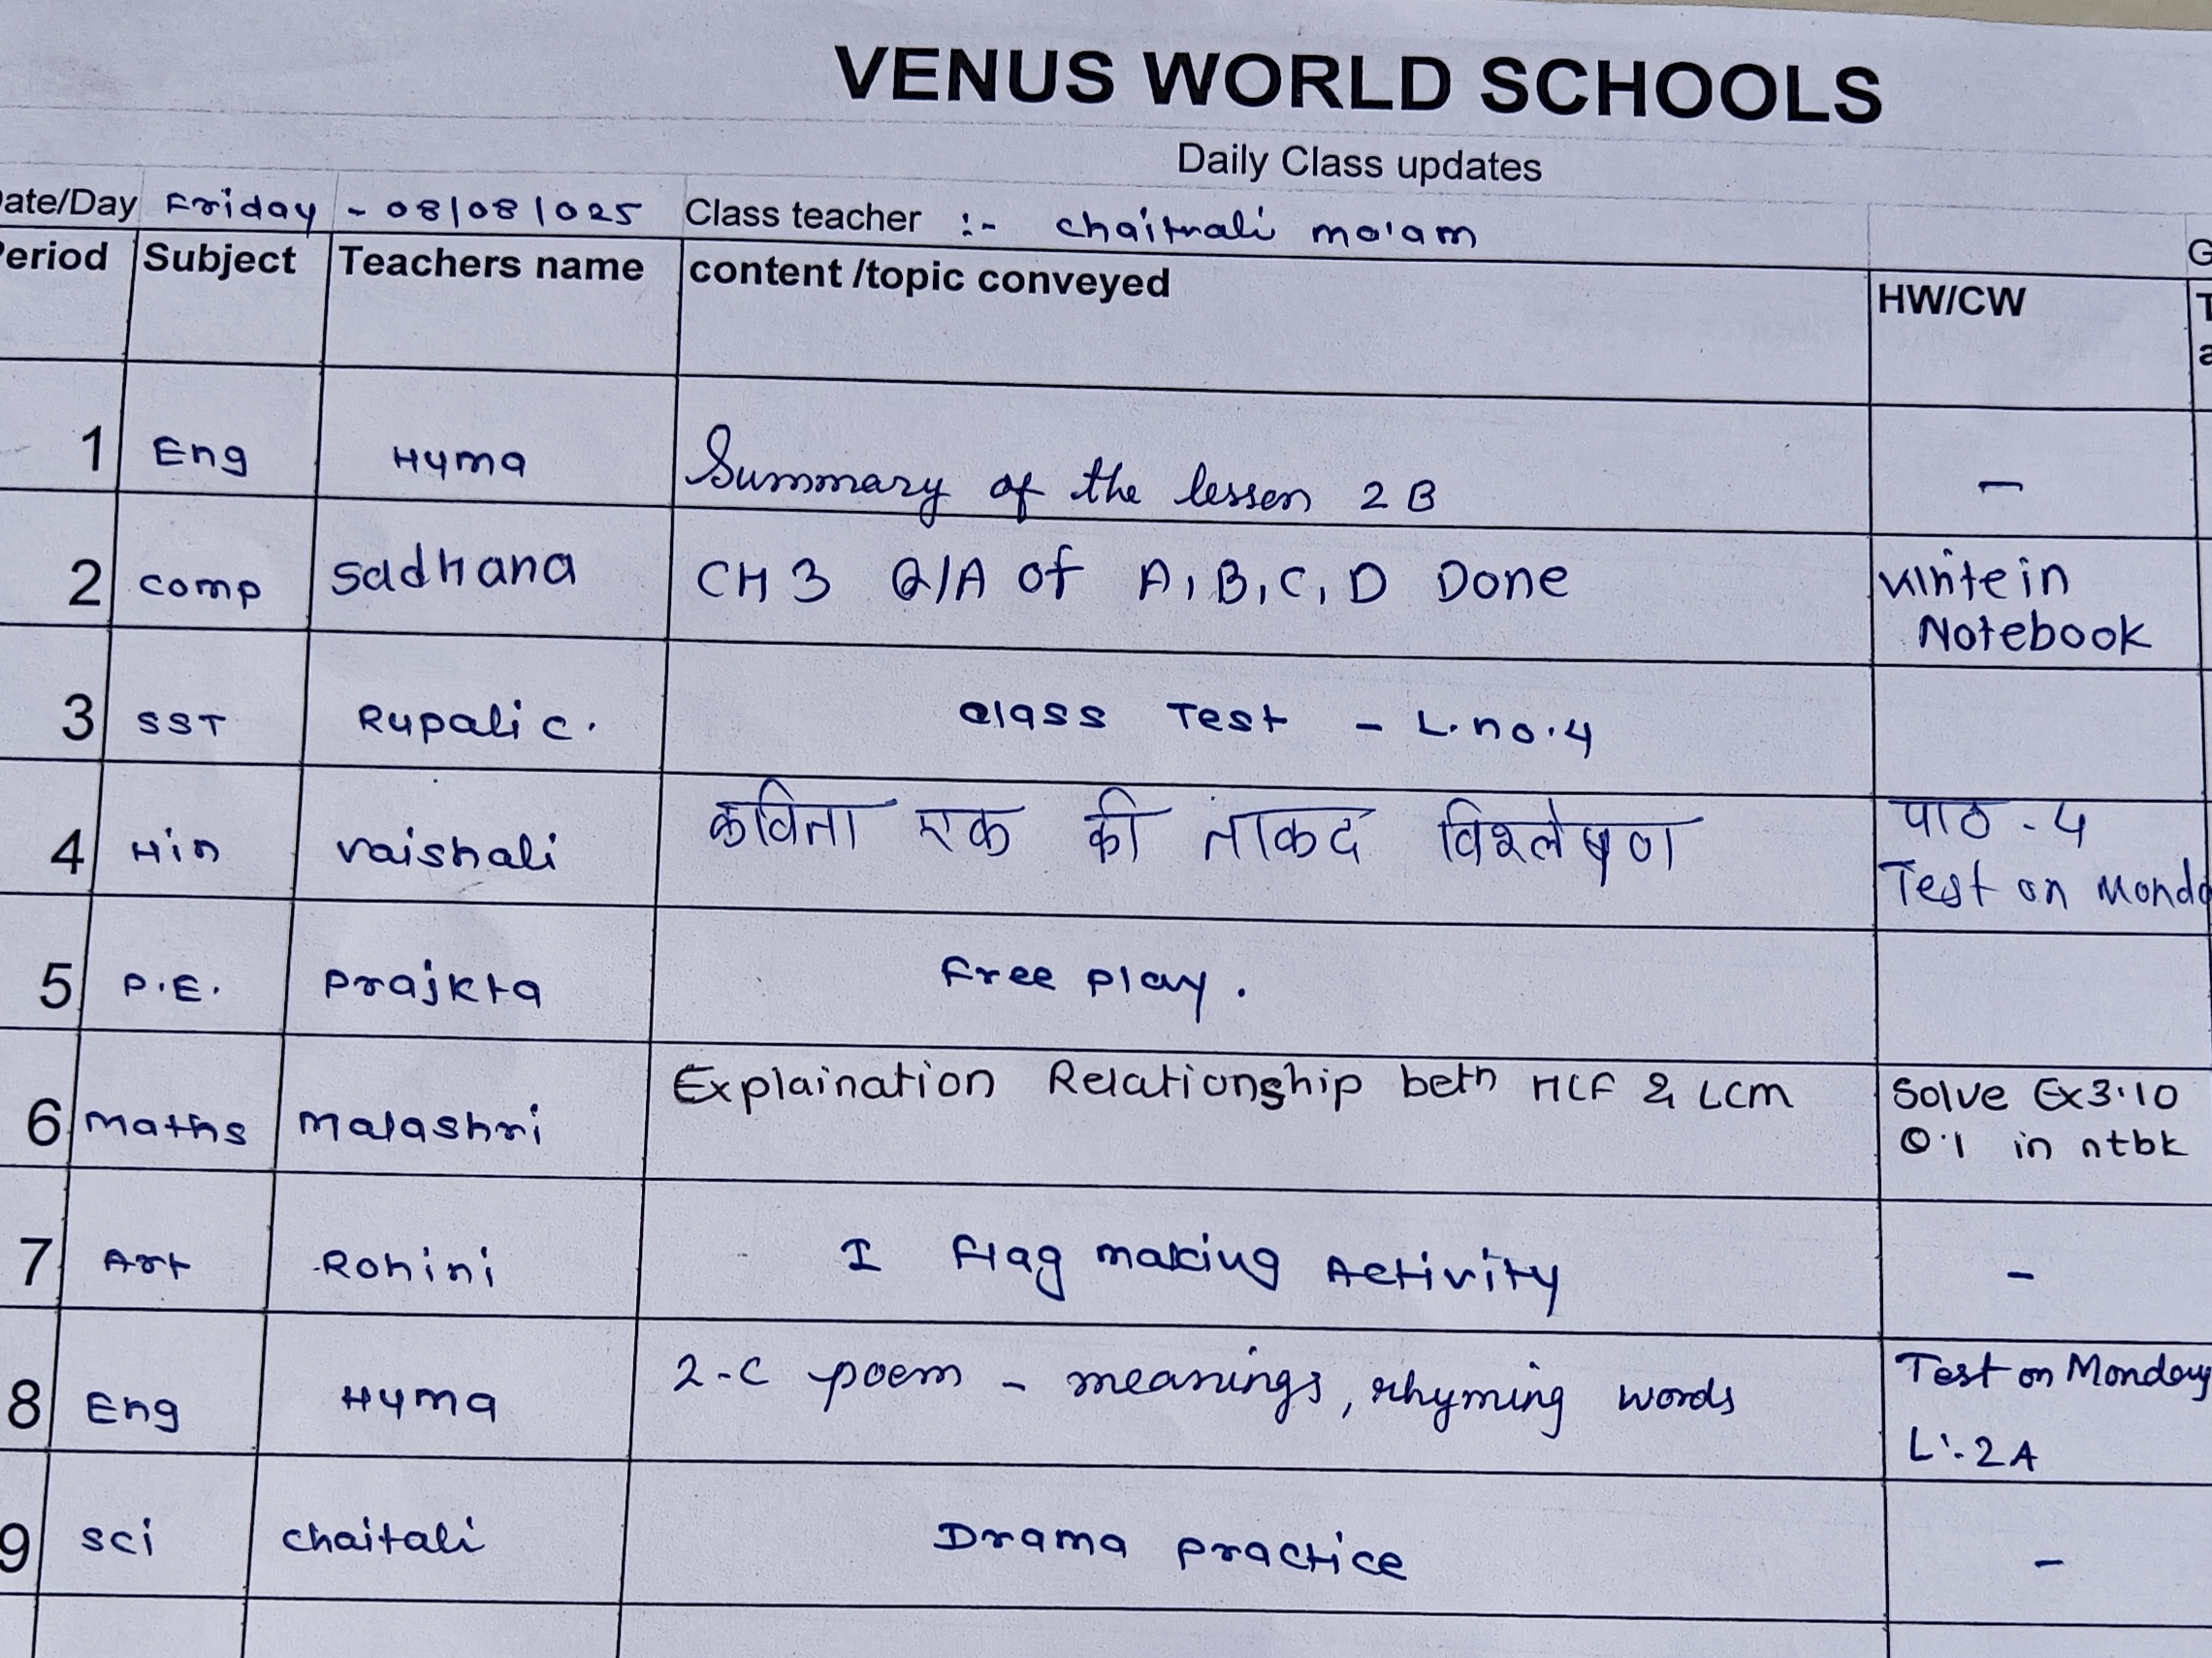 VENUS WORLD SCHOOLS
Daily Class updates
ate/Day Friday - 08/08/025 Class teacher :- chaitrali ma'am G
eriod Subject Teachers name content /topic conveyed HW/CW
1 Eng Hyma Summary of the lesson 2 B -
2 comp Sadhana CH 3 Q/A of A, B, C, D Done Write in
Notebook
3 SST Rupali C. Class Test - L.no.4
4 Hin Vaishali कविता एक की ताकद विश्लेषण पाठ - 4
Test on Monda
5 P.E. Prajkta Free play.
6 Maths Malashri Explaination Relationship betn HCF & LCM Solve Ex 3.10
Q.1 in ntbk
7 Art Rohini I Flag making Activity -
8 Eng Hyma 2-C poem - meanings, rhyming words Test on Monday
L:-2A
9 sci Chaitali Drama practice -